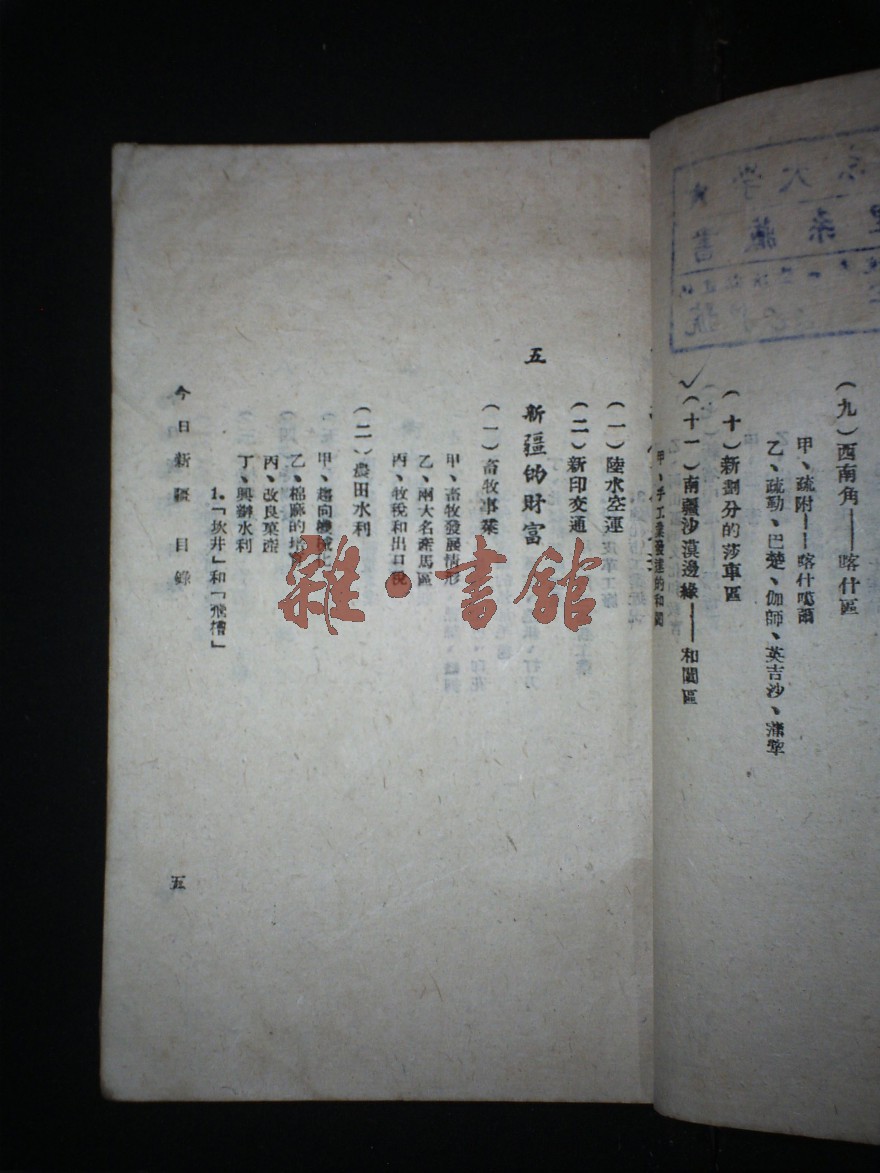 大學
系藏書
號
(九)西南角——喀什區
甲、疏附——喀什噶爾
乙、疏勒、巴楚、伽師、英吉沙、蒲犂
(十)新劃分的莎車區
(十一)南疆沙漠邊緣——和闐區
甲、手工業發達的和闐
(一)陸水空運
(二)新印交通
五 新疆的財富
(一)畜牧事業
甲、畜牧發展情形
乙、兩大名產馬區
丙、牧稅和出口稅
(二)農田水利
甲、趨向機械化
乙、棉蔴的培
丙、改良菓產
丁、興辦水利
1.「坎井」和「飛槽」
今日新疆 目錄
五
雜·書館